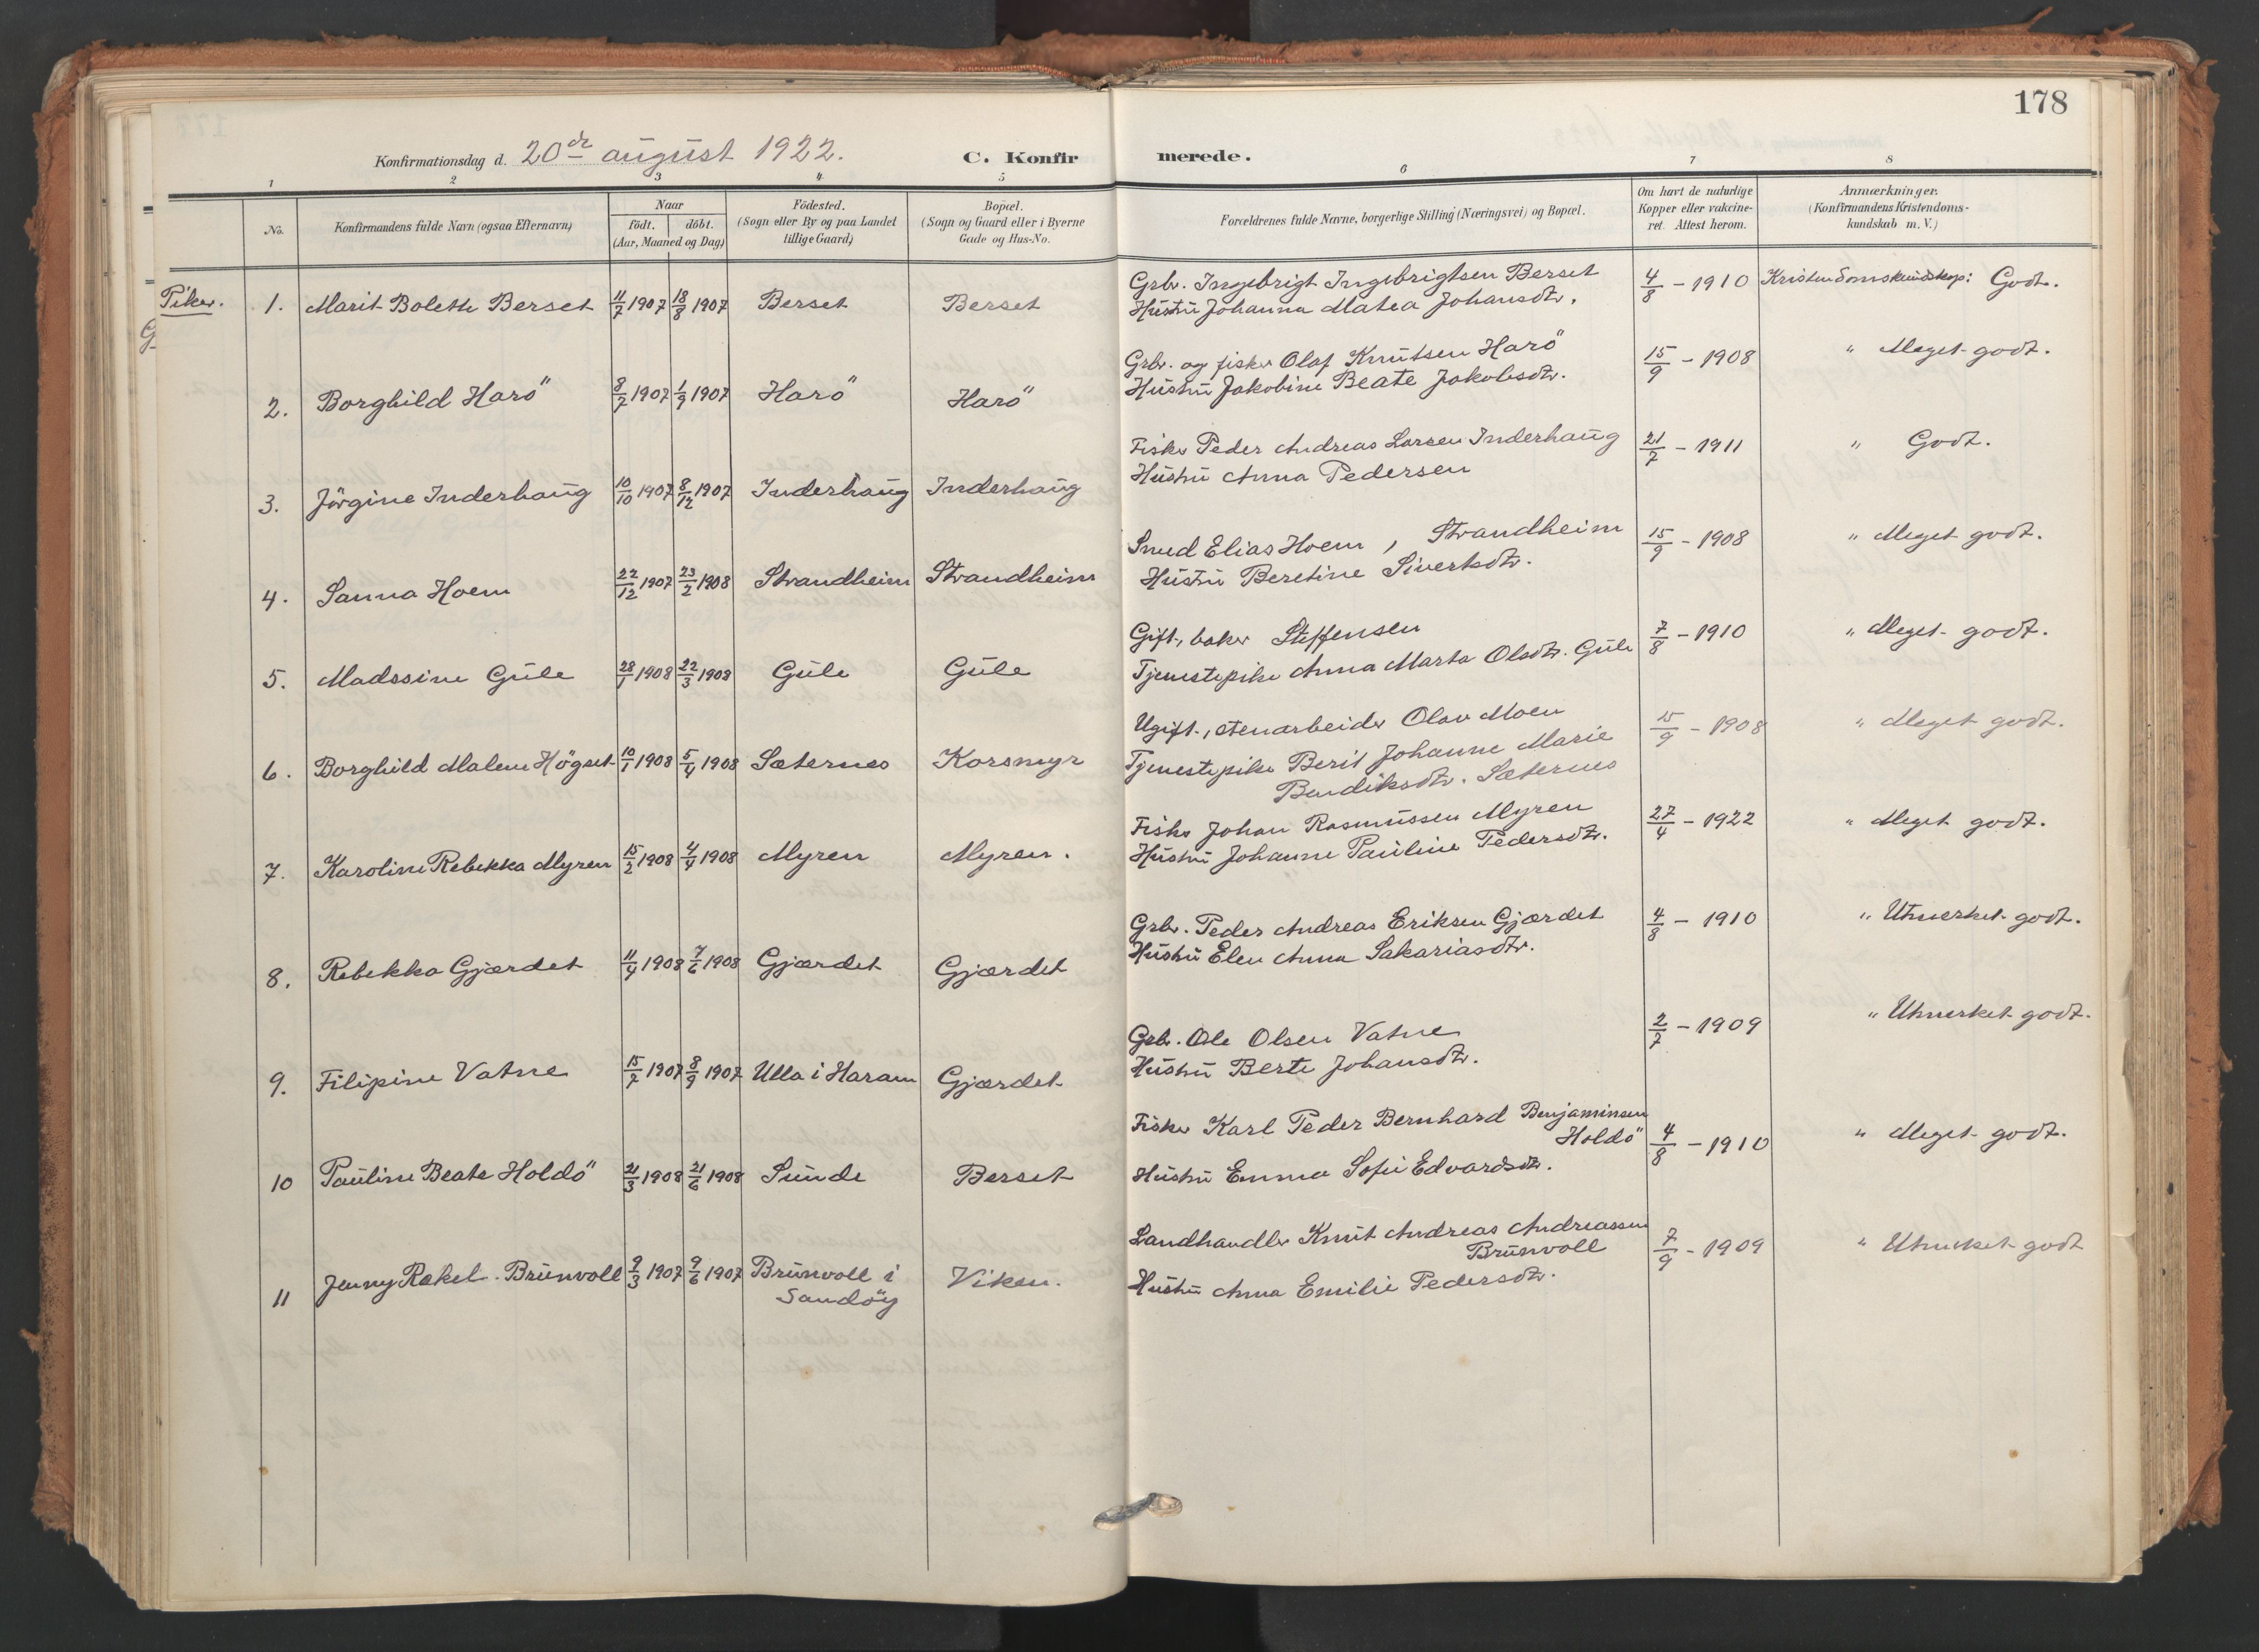 178
Konfirmationsdag d. 20de august 1922. C. Konfirmerede.
1 2 3 4 5 6 7 8
No. Konfirmandens fulde Navn (ogsaa Efternavn) Naar født. døbt. (Aar, Maaned og Dag) Födested. (Sogn eller By og paa Landet tillige Gaard) Bopæl. (Sogn og Gaard eller i Byerne Gade og Hus-No. Forældrenes fulde Navne, borgerlige Stilling (Næringsvei) og Bopæl. Om havt de naturlige Kopper eller vakcineret. Attest herom. Anmærkninger. (Konfirmandens Kristendomskundskab m. V.)
Piker. 1. Marit Bolette Berset 11/7 1907 18/8 1907 Berset Berset Grbr. Ingebrigt Ingebrigtsen Berset 4/8 - 1910 Kristendomskundskap: Godt.
Hustru Johanna Matea Johansdtr.
2. Borghild Harö 8/7 1907 1/9 1907 Harö Harö Grbr. og fisker Olaf Knutsen Harö 15/9 - 1908 " Meget godt.
Hustru Jakobine Beate Jakobsdtr.
3. Jörgine Inderhaug 10/10 1907 8/12 1907 Inderhaug Inderhaug Fisker Peder Andreas Larsen Inderhaug 21/7 - 1911 " Godt.
Hustru Anna Pedersen
4. Sanna Hoem 22/12 1907 23/2 1908 Strandheim Strandheim Smed Elias Hoem, Strandheim 15/9 - 1908 " Meget godt.
Hustru Beretine Sivertsdtr.
5. Madssine Gule 28/1 1908 22/3 1908 Gule Gule Gift, baker Steffensen 7/8 - 1910 " Meget godt.
Tjenestepike Anna Marta Olsdtr. Gule
6. Borghild Malene Högset 10/1 1908 5/4 1908 Sæternes Korsmyr Ugift, stenarbeider Olav Moen 15/9 - 1908 " Meget godt.
Tjenestepike Berit Johanne Marie
Bendiksdtr. Sæternes
7. Karoline Rebekka Myren 15/2 1908 4/4 1908 Myren Myren. Fisker Johan Rasmussen Myren 27/4 - 1922 " Meget godt.
Hustru Johanne Pauline Pedersdtr.
8. Rebekka Gjærdet 11/4 1908 7/6 1908 Gjærdet Gjærdet Grbr. Peder Andreas Eriksen Gjærdet 4/8 - 1910 " Utmerket godt.
Hustru Elen Anna Sakariasdtr.
9. Filipine Vatne 15/7 1907 8/9 1907 Ulla i Haram Gjærdet Grbr. Ole Olsen Vatne 2/7 - 1909 " Utmerket godt.
Hustru Berte Johansdtr.
10 Pauline Beate Holdö 21/3 1908 21/6 1908 Sunde Berset Fisker Karl Peder Bernhard Benjaminsen
Holdö 4/8 - 1910 " Meget godt.
Hustru Emma Sofie Edvardsdtr.
11 Jenny Rakel Brunvoll 9/3 1907 9/6 1907 Brunvoll i Sandöy Viken. Landhandler Knut Andreas Andreassen
Brunvoll 7/9 - 1909 " Utmerket godt
Hustru Anna Emilie Pedersdtr.